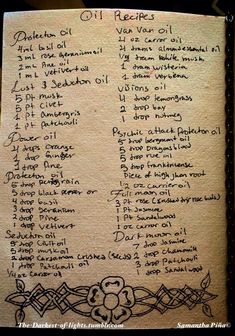 Oil Recipes
Protection oil
4 ml basil oil
3 ml rose geranium oil
2 ml pine oil
1 ml vetivert oil
Lust & Seduction oil
5 pt musk
5 pt Civet
1 pt Ambergris
1 pt Patchouli
Power oil
4 drops orange
1 drop ginger
1 drop Pine
Protection oil
5 drop
4 drop black pepper or
4 drop basil
3 drop geranium
2 drop Pine
1 drop vetivert
Seduction oil
5 drop oil
5 drop musk oil
2 drop Cardamon crushed (seeds)
1 drop Patchouli oil
oz Carrier oil
Van Van oil
oz carrier oil
4 drams almond essental oil
dram white musk
1 dram wisteria
1 dram verbena
Visions oil
4 drop lemongrass
2 drop bay
1 drop nutmeg
Psychic attack Protection oil
5 drop bergamont oil
5 drop Dragons blood
5 drop rue oil
3 drop frankinsense
Piece of high John root
1/2 oz carrier oil
Full moon oil
3 pt rose
1 pt Jasmine
1 pt Sandalwood
oz carrier oil
Dark moon oil
drop Jasmine
2 drop chammomile
1 drop Patchouli
1 drop Sandalwood
The-Darkest-of-lights.tumblr.com
Samantha Piña©